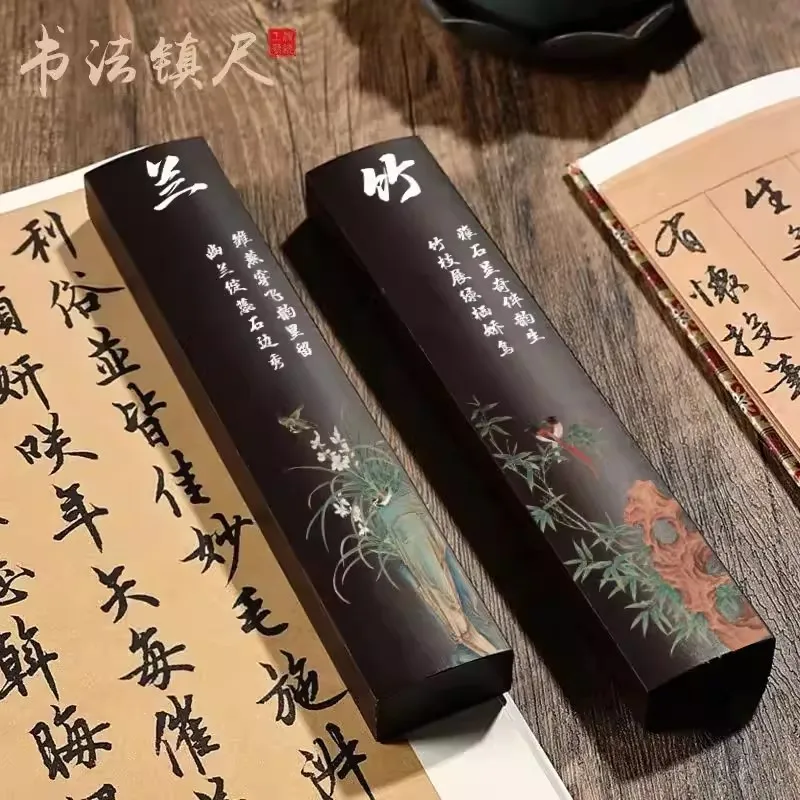 书法镇尺
兰
雏燕穿飞韵里留
幽兰绽蕊石边秀
竹
雅石显奇伴韵生
竹枝展绿栖娇鸟
利俗並皆佳妙毛施淑
妍咲年矢每催
斡晦
生
有懷投筆